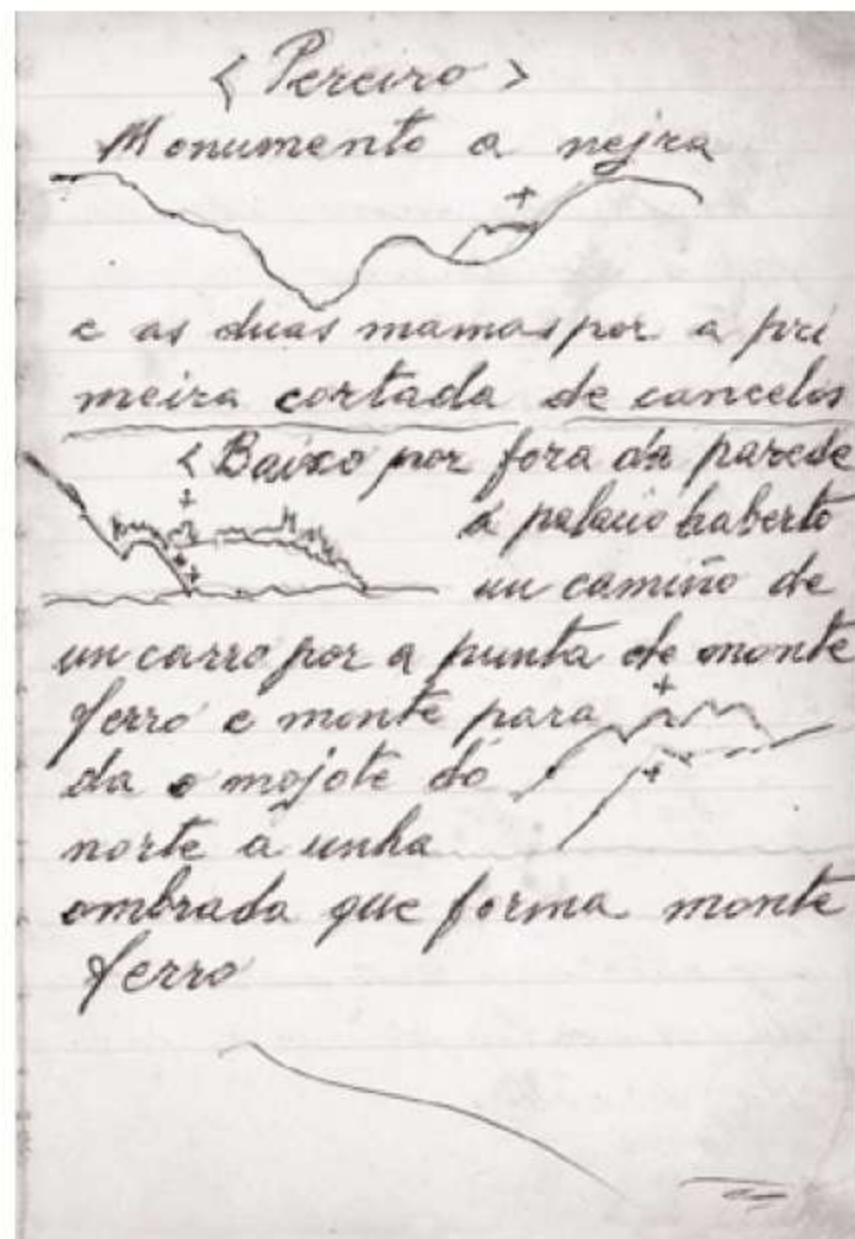 < Pereiro >
Monumento a nejra
e as duas mamas por a pri
meira cortada de cancelos
< Baixo por fora da parede
a palacio haberto
un camiño de
un carro por a punta de monte
ferro e monte para
da o mojote do
norte a unha
ombrada que forma monte
ferro